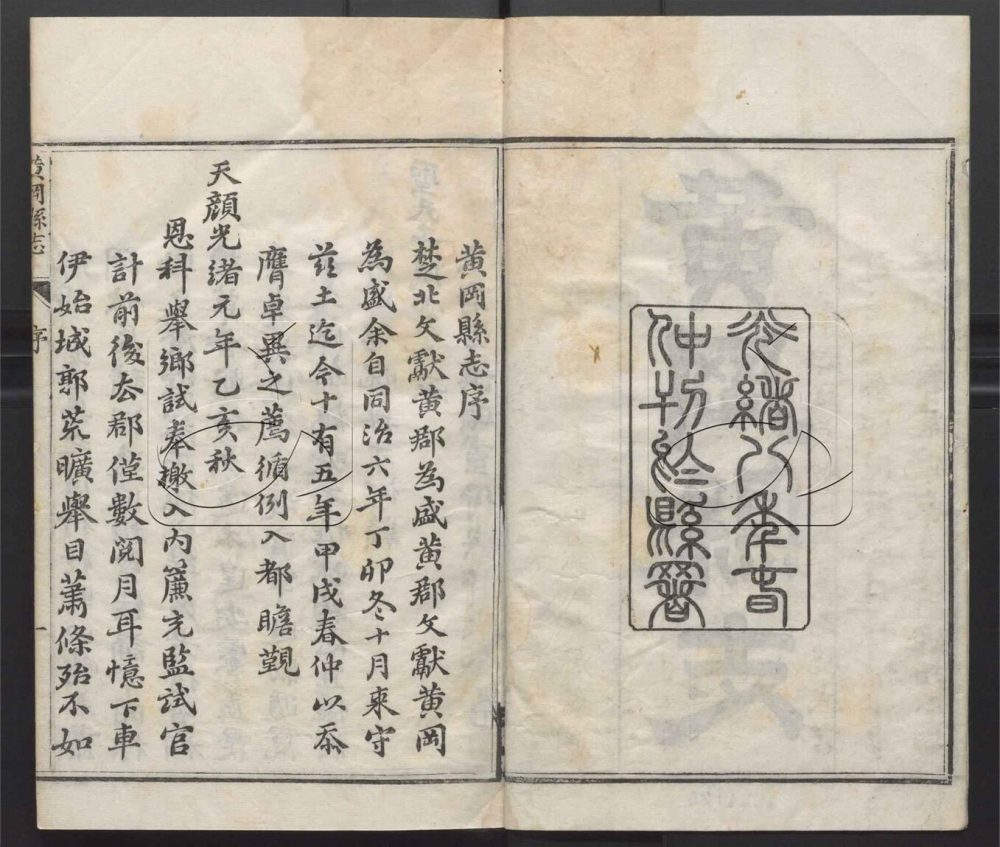 光緒八年春
仲刊於縣署
黄岡縣志序
楚北文獻黄郡為盛黄郡文獻黄岡
為盛余自同治六年丁卯冬十月來守
茲土迄今十有五年甲戌春仲以忝
膺卓異之薦循例入都瞻覲
天顏光緒元年乙亥秋
恩科舉鄉試奉檄入內簾充監試官
計前後去郡僅數閱月耳憶下車
伊始城郭荒曠舉目蕭條殆不如
黄岡縣志 序 一